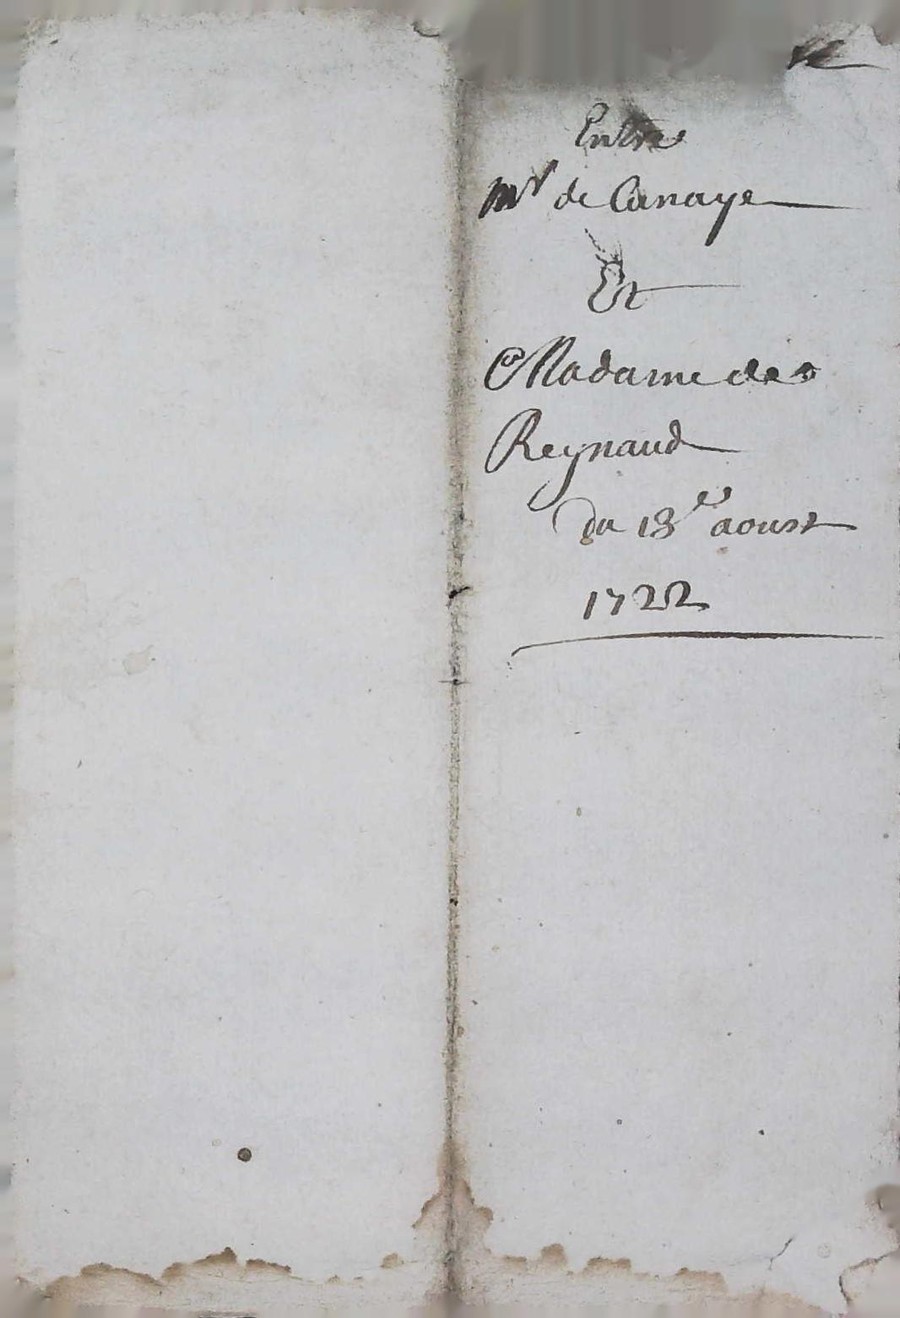 Entre
Mr de Canaye
Et
Madame de
Reynaud
du 13e aoust
1722